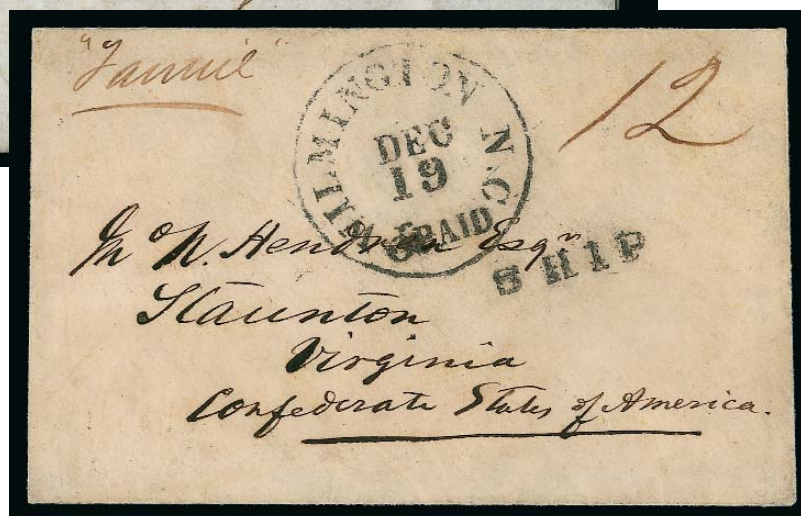 "Fannie"
12
WILMINGTON N.C
DEC
19
5 PAID
SHIP
Jn° N. Hendren Esqr
Staunton
Virginia
Confederate States of America.